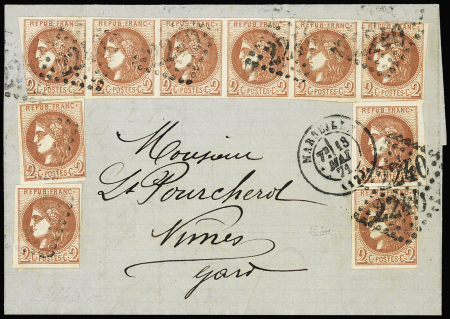 REPUB·FRANC· REPUB·FRANC· REPUB·FRANC· REPUB·FRANC· REPUB·FRANC· REPUB·FRANC·
2 C·POSTES·C· 2 2 C·POSTES·C· 2 2 C·POSTES·C· 2 2 C·POSTES·C· 2 2 C·POSTES·C· 2 2 C·POSTES·C· 2
REPUB·FRANC·
2 C·POSTES·C· 2
REPUB·FRANC·
2 C·POSTES·C· 2
Monsieur
St Pourcherol
Nimes
Gard
MARSEILLE
15
MAI
71
REPUB·FRANC·
2240
2240
2 C·POSTES·C· 2